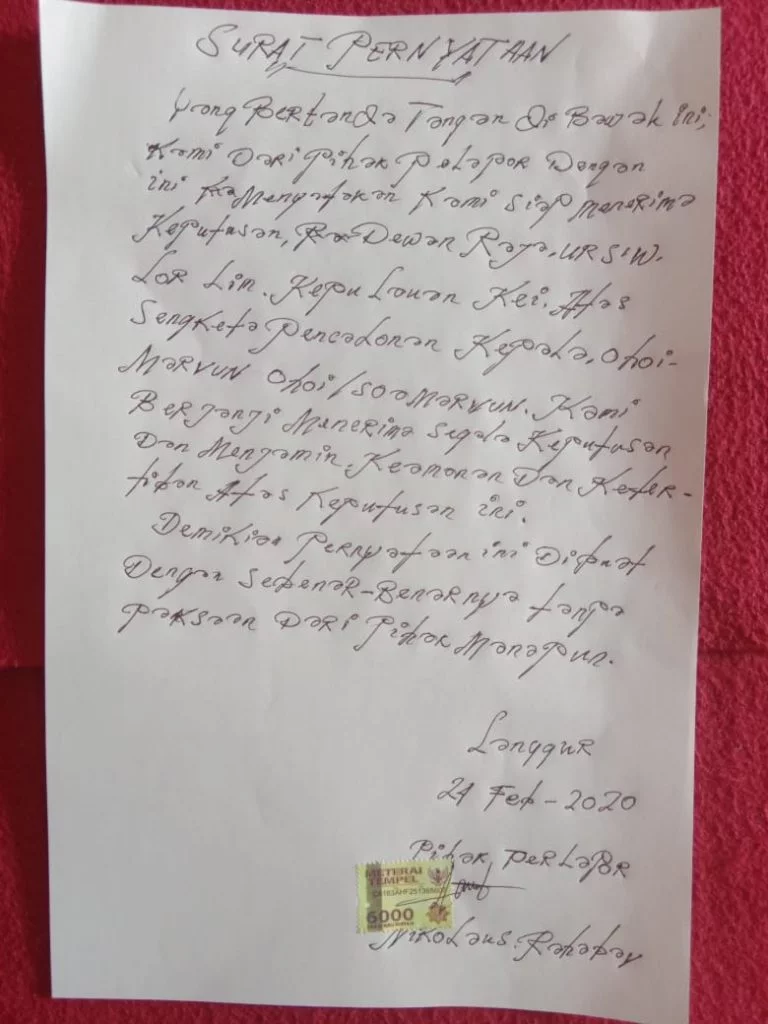 SURAT PERNYATAAN
Yang Bertanda Tangan Di Bawah ini;
Kami Dari Pihak Pelapor Dengan
ini Menyatakan Kami Siap Menerima
Keputusan, Dewan Raja, UR SIW.
LOR Lim. Kepulauan Kei. Atas
Sengketa Pencalonan Kepala, Ohoi-
MARVUN Ohoi/SOA MARVUN. Kami
Berjanji Menerima Segala Keputusan
Dan Menjamin Keamanan Dan Keter-
tiban Atas Keputusan ini.
Demikian Pernyataan ini Dibuat
Dengan Sebenar-Benarnya tanpa
paksaan Dari Pihak Manapun.
Langgur
24 Feb - 2020
Pihak Perlapor
METERAI
TEMPEL
6000
Nikolaus. Rahabav